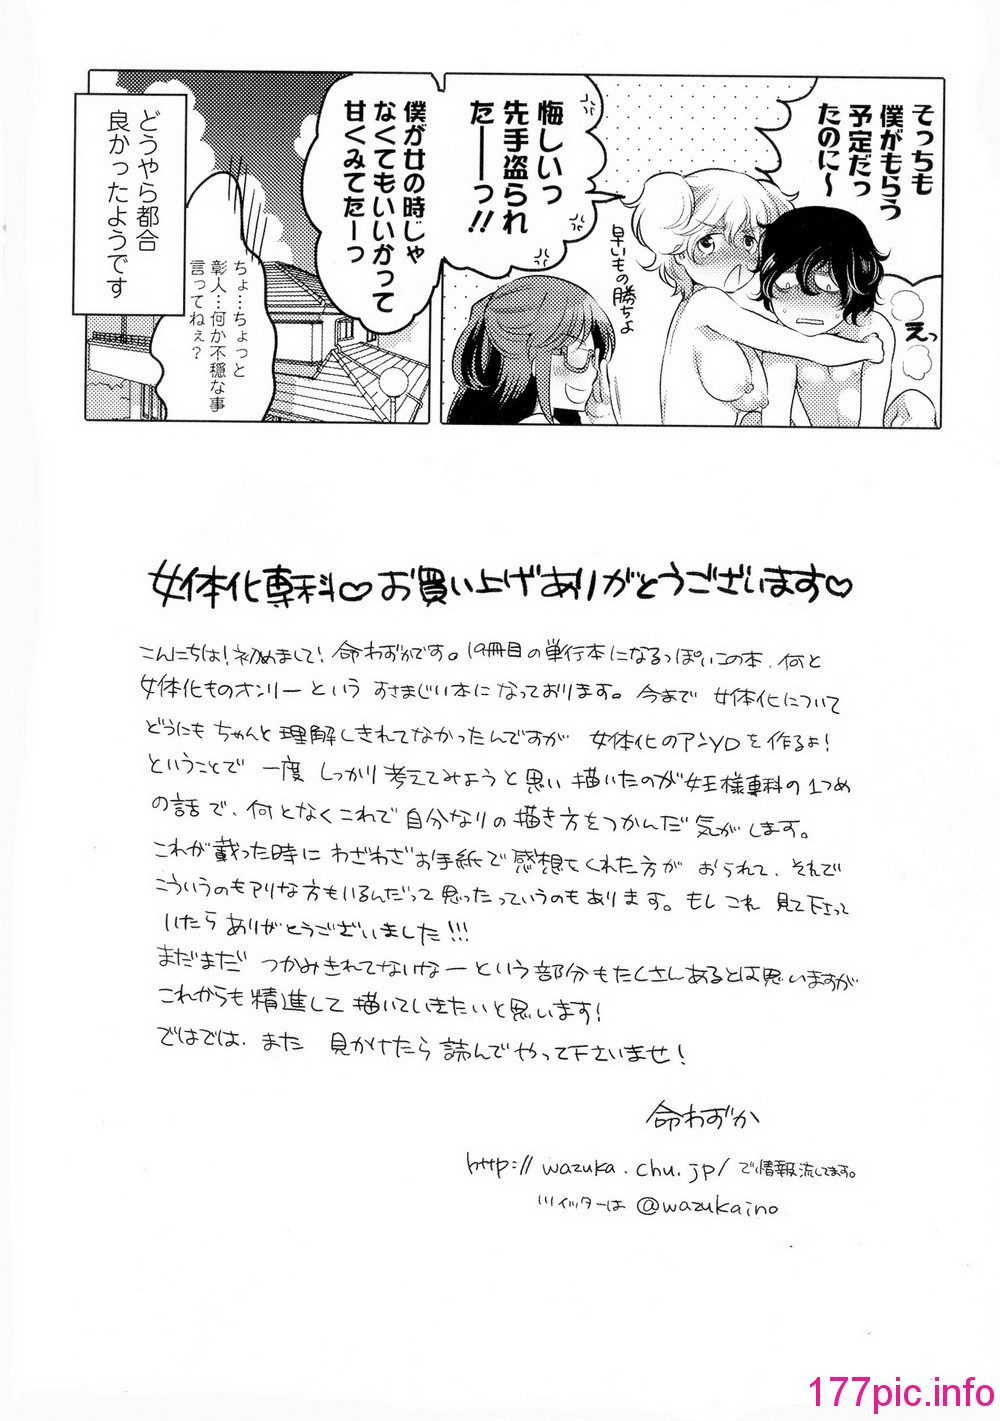 そっちも
僕がもらう
予定だっ
たのに〜
えっ
早いもの勝ちよ
悔しいっ
先手盗られ
たーーっ!!
僕が女の時じゃ
なくてもいいかって
甘くみてたーっ
ちょ…ちょっと
彰人…何か不穏な事
言ってねぇ?
どうやら都合
良かったようです
女体化専科♡お買い上げありがとうございます♡
こんにちは!初めまして!命わずかです。19冊目の単行本になるっぽいこの本、何と
女体化ものオンリーという すさまじい本になっております。今まで 女体化について
どうにも ちゃんと理解しきれてなかったんですが 女体化のアンソロを作るよ!
ということで 一度 しっかり考えてみようと思い 描いたのが女王様専科の1つめ
の話で、何となくこれで自分なりの描き方をつかんだ気がします。
これが載った時に わざわざお手紙で感想をくれた方が おられて、それで
こういうのもアリな方もいるんだって思ったっていうのもあります。もし これ 見て下さって
いたら ありがとうございました!!!
まだまだ つかみきれてないなーという部分もたくさんあるとは思いますが
これからも精進して描いていきたいと思います!
ではでは、また 見かけたら 読んでやって下さいませ!
命わずか
http://wazuka.chu.jp/ で情報流してます。
ツイッターは @wazukaino
177pic.info